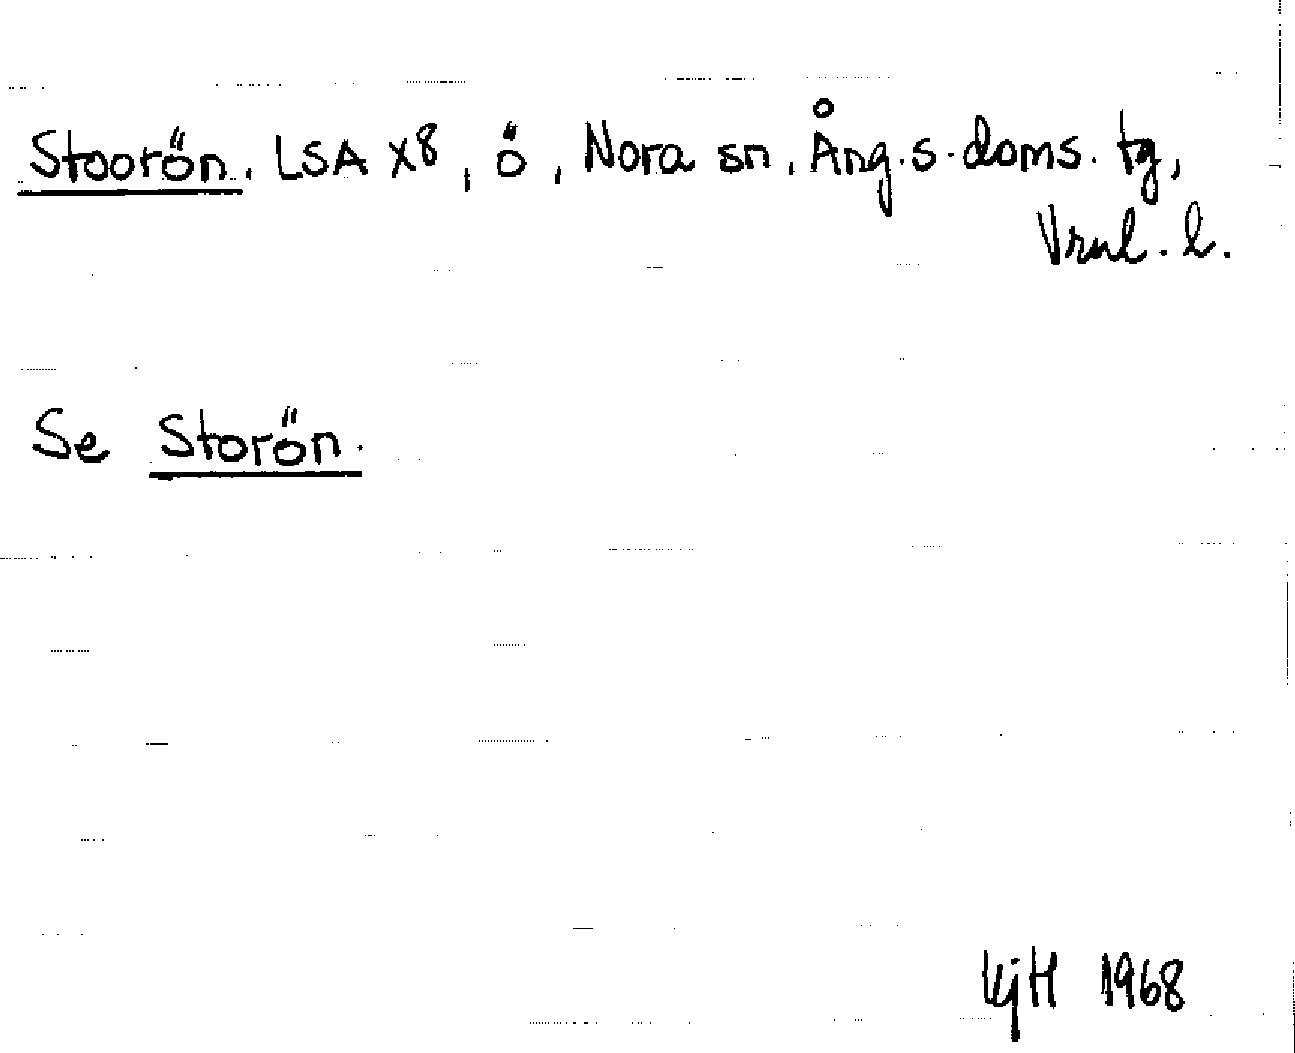 Stoorön, LSA X8, ö, Nora sn, Ång.s.doms.tg,
Vrnl.l.
Se Storön.
KjH 1968